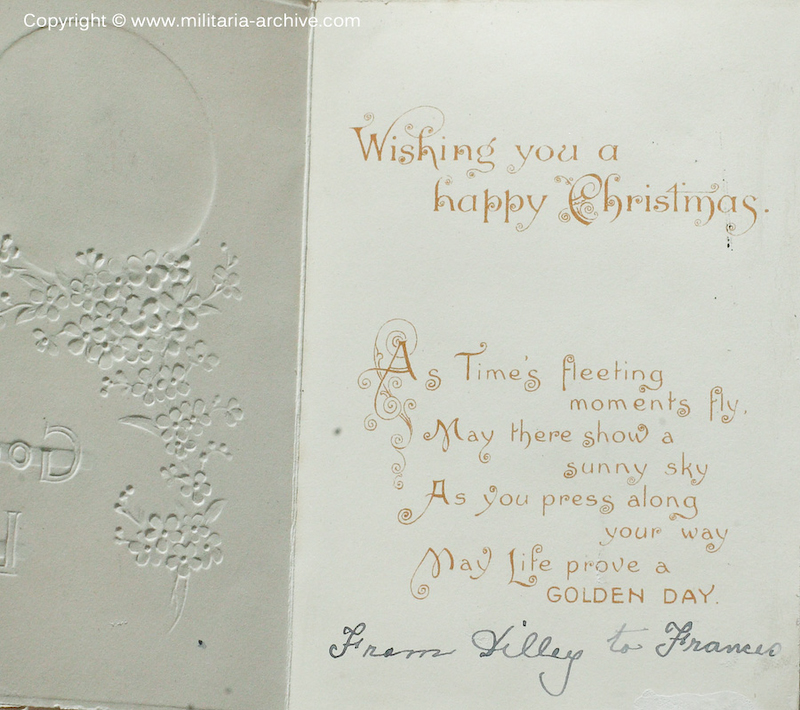 Copyright © www.militaria-archive.com
Wishing you a
happy Christmas.
As Time's fleeting
moments fly,
May there show a
sunny sky
As you press along
your way
May Life prove a
GOLDEN DAY.
From Dilley to Frances